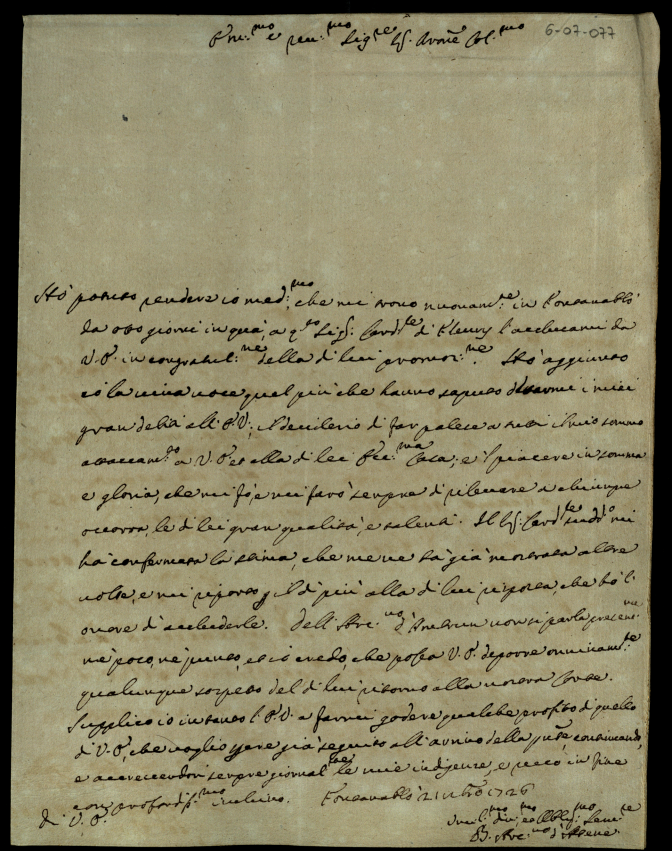 Em.mo e rev.mo Sig.re Sig. Pron'e Col.mo
6-07-077
Hò potuto rendere io med.mo, che mi trovo nuovam.te in Fontanablò
da otto giorni in quà, a q.to Sig. Card.le di Fleury l'acclusami da
V. E. in congratul.ne della di lui promoz.ne. Hò aggiunto
cò la viva voce quel più che hanno saputo i miei
gran debiti all'E. V.; il desiderio di far palese a tutti il mio sommo
attaccam.to a V. E. et alla di lei Ecc.ma Casa; e il piacere in somma
e gloria, che mi fò, e mi farò sempre di rilevare a chiunque
occorra, le di lei gran qualità, e talenti. Il Sig. Card.le sud.to mi
hà confermata la stima, che me ne hà già mostrata altre
volte, e mi riporto p il di più alla di lui risposta, che hò l'
onore d'accluderle. Dell'Arc.vo d'Ambrun non si parla presen.ne
nè poco, nè punto, et io credo, che possa V. E. deporre onninam.te
qualunque sospetto del di lui ritorno alla nostra Corte.
Supplico io intanto l'E. V. a farmi godere qualche profitto di quello
di V. E., che voglio essere già seguito all'arrivo della pnte, continuando,
e accrescendosi sempre giornal.te le mie indigenze, e resto in fine
con profondiss.mo inchino. Fontanablò 21 8bre 1726
di V. E.
Umil.mo div.mo et Obblig.mo Serv.re
B. Arc.vo d'Atene